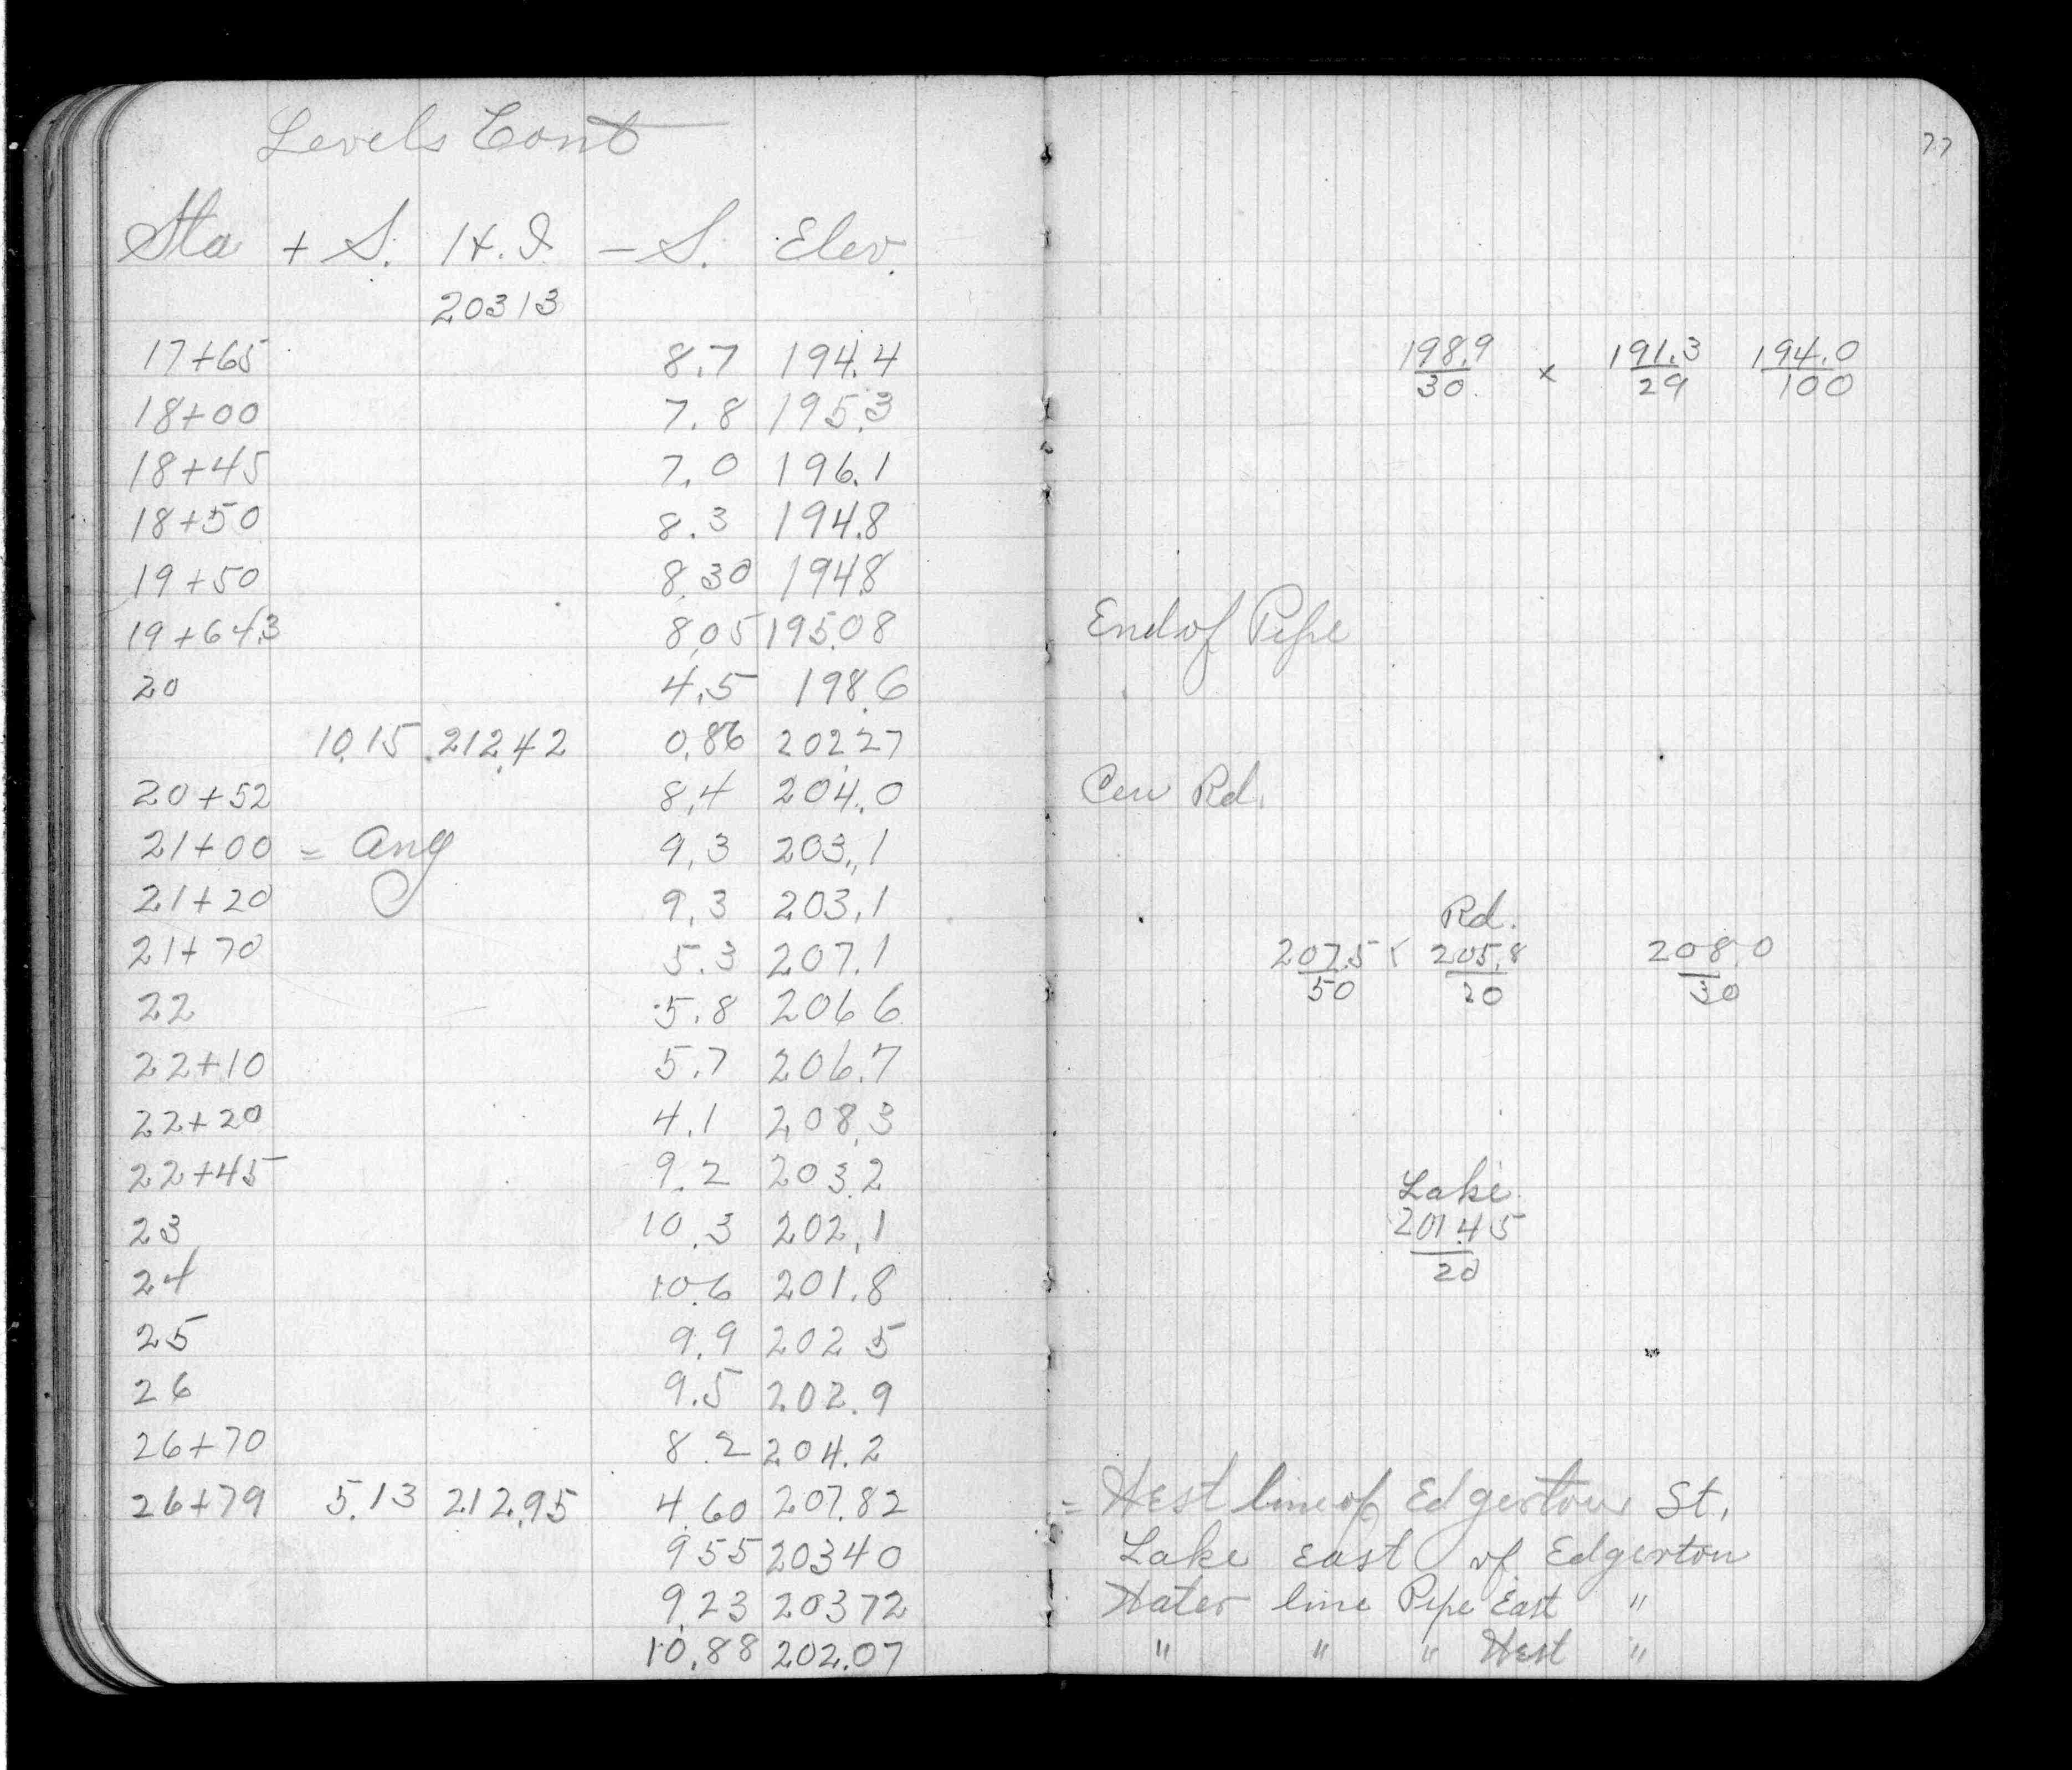 Levels Cont
Sta + S. H.I. - S. Elev.
20313
17+65 8.7 194.4
18+00 7.8 195.3
18+45 7.0 196.1
18+50 8.3 194.8
19+50 8.30 194.8
19+64.3 8.05 195.08
20 4.5 198.6
10.15 212.42 0.86 202.27
20+52 8.4 204.0
21+00 = Ang 9.3 203.1
21+20 9.3 203.1
21+70 5.3 207.1
22 5.8 206.6
22+10 5.7 206.7
22+20 4.1 208.3
22+45 9.2 203.2
23 10.3 202.1
24 10.6 201.8
25 9.9 202 5
26 9.5 202.9
26+70 8.2 204.2
26+79 5.13 212.95 4.60 207.82
9 55 203 40
9.23 203 72
10.88 202.07
77
198.9 x 191.3 194.0
30 29 100
End of Pipe
Cen Rd.
Rd.
207.5 x 205.8 208.0
50 20 30
Lake
201.45
20
= West line of Edgerton St.
Lake east of Edgerton
Water line Pipe East "
" " " West "